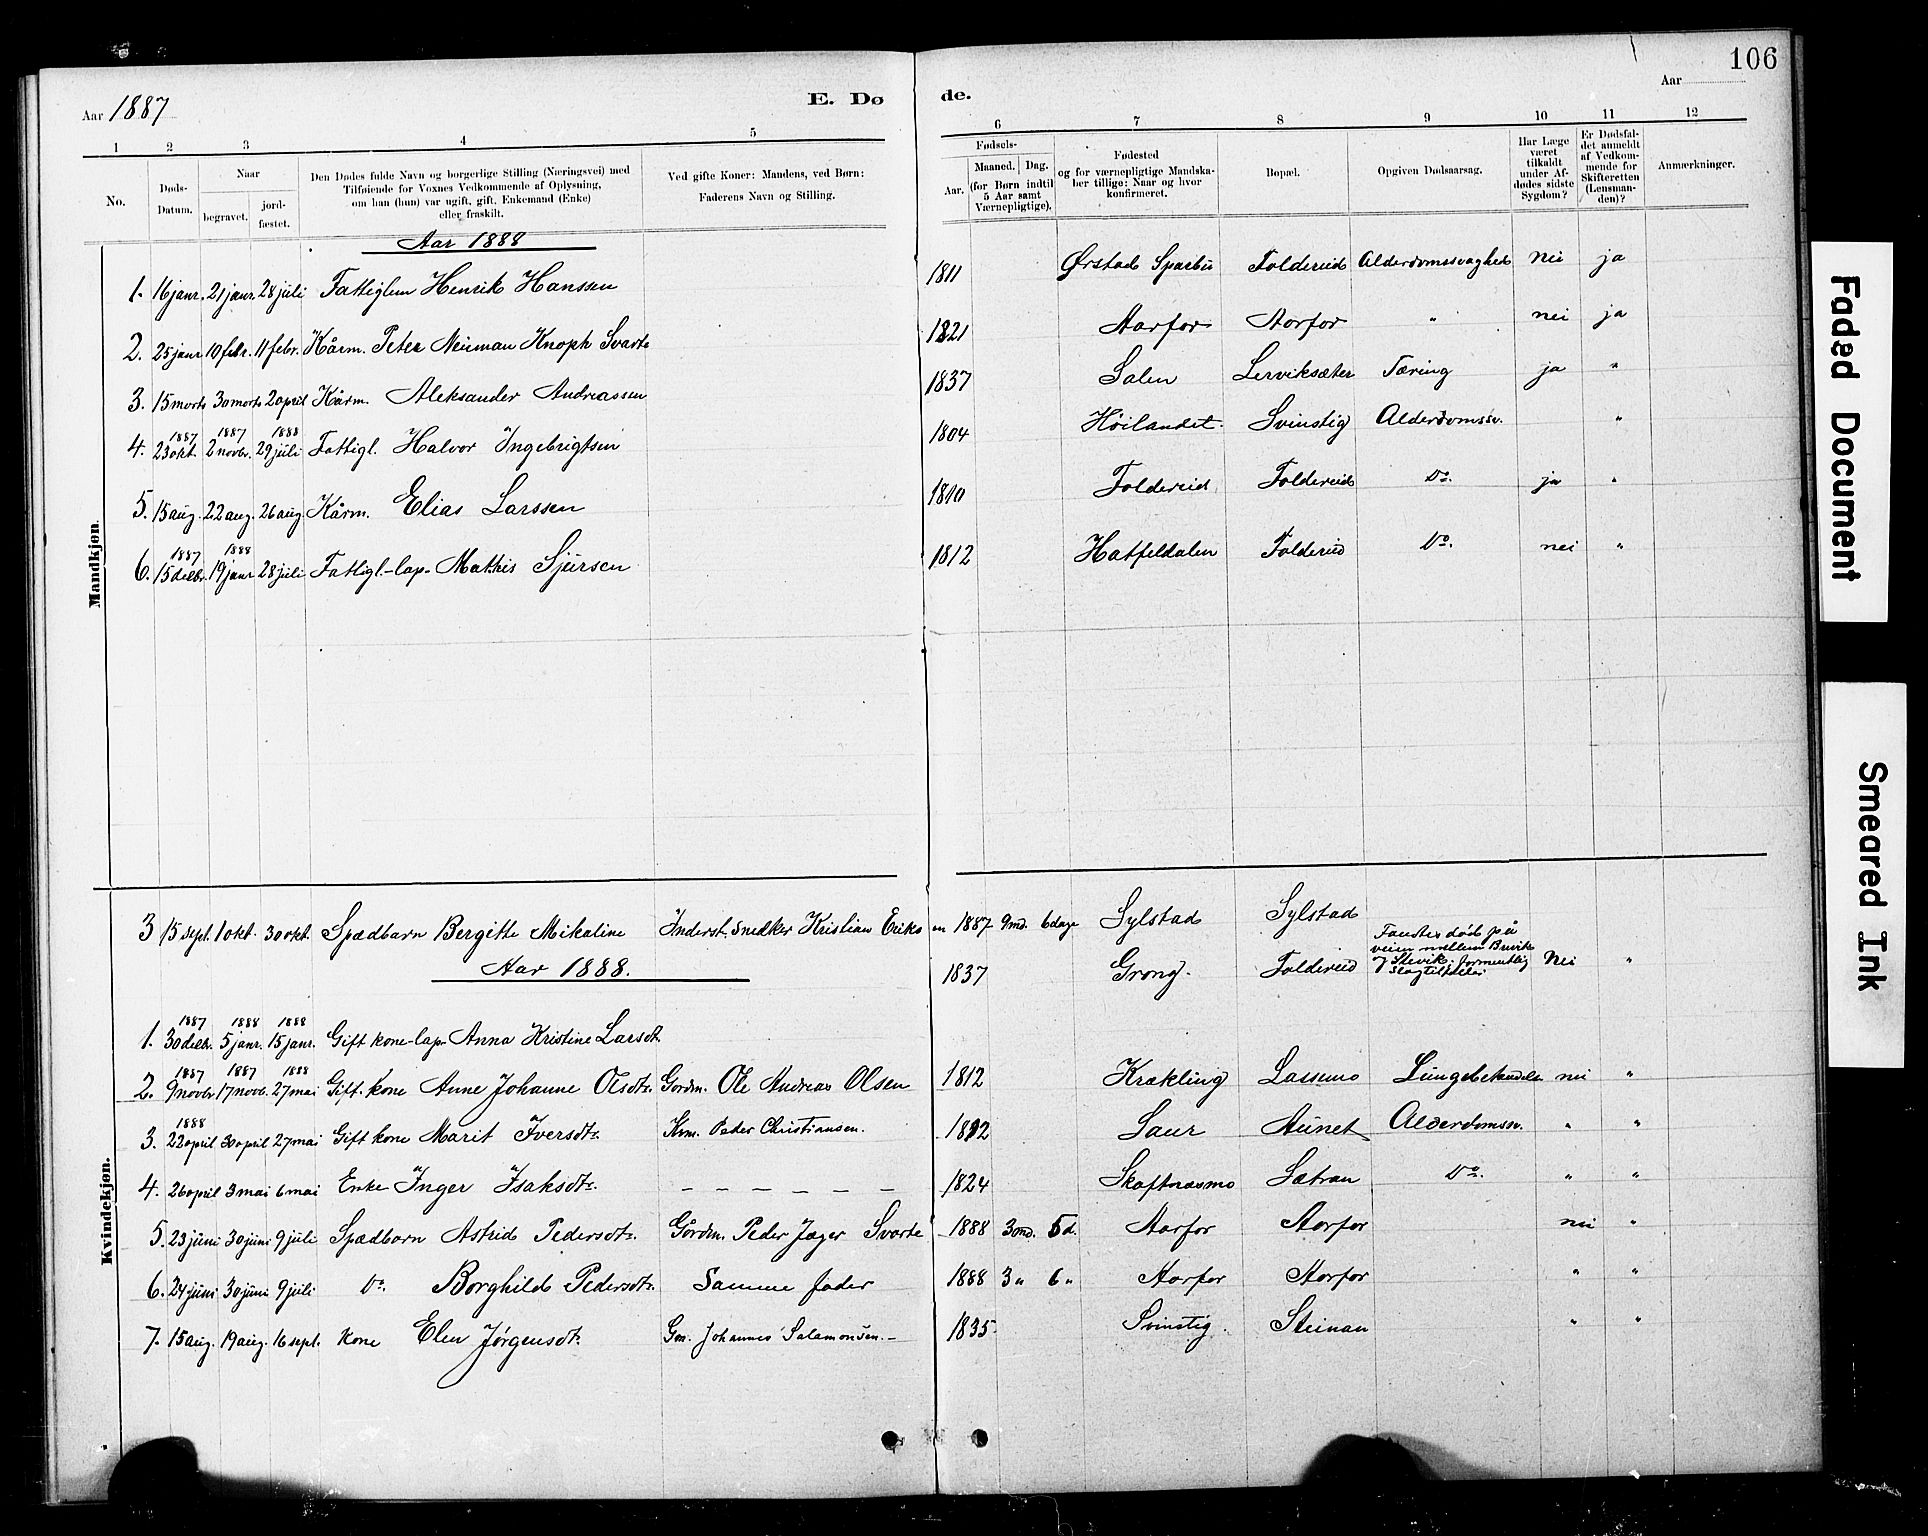 106
Aar 1887
E. Dø
de.
Aar
1 2 3 4 5 6 7 8 9 10 11 12
No.
Døds-Datum.
Naar
begravet.
jord-fæstet.
Den Dødes fulde Navn og borgerlige Stilling (Næringsvei) med
Tilføiende for Voxnes Vedkommende af Oplysning,
om han (hun) var ugift, gift, Enkemand (Enke)
eller fraskilt.
Ved gifte Koner: Mandens, ved Børn:
Faderens Navn og Stilling.
Fødsels-
Aar.
Maaned. Dag.
(for Børn indtil
5 Aar samt
Værnepligtige).
Fødested
og for værnepligtige Mandska-
ber tillige: Naar og hvor
konfirmeret.
Bopæl.
Opgiven Dødsaarsag.
Har Læge
været
tilkaldt
under Af-
dødes sidste
Sygdom?
Er Dødsfal-
det anmeldt
af Vedkom-
mende for
Skifteretten
(Lensman-
den)?
Anmærkninger.
Mandkjøn.
Aar 1888
1. 16 janr. 21 janr. 28 juli Fattiglem Henrik Hanssen 1811 Ørstad Sparbu Foldereid Alderdomssvaghed nei ja
2. 25 janr 10 febr. 11 febr. Kårm. Peter Neuman Knoph Svarte 1821 Aarfor Aarfor " nei ja
3. 15 marts 30 marts 2 april Kårm. Aleksander Andreassen 1837 Salen Lerviksæter Tæring ja "
4. 1887 23 okt. 1887 2 novbr. 1888 29 juli Fattigl. Halvor Ingebrigtsen 1804 Høilandet. Svinstig Alderdomssv. "
5. 15 aug. 22 aug. 26 aug. Kårm. Elias Larssen 1810 Foldereid Foldereid Do. ja "
6. 1887 15 decbr. 1888 19 janr 28 juli Fattigl.-lap. Mathis Sjursen 1812 Hatfeldalen Foldereid Do. nei "
Kvindekjøn.
3 15 sept. 1 okt. 30 okt. Spædbarn Bergitte Mikaline Inderst. Snedker Kristian Eriksen 1887 9 md. 6 dage Sylstad Sylstad
Aar 1888.
1837 Grong. Foldereid Fandtes død på veien mellem og formentlig slagtilfælde. Nei "
1. 1887 30 decbr. 1888 5 janr. 1888 15 janr. Gift kone-lap. Anna Kristine Larsdt.
2. 1887 9 novbr 1887 17 novb. 1888 27 mai Gift. kone Anne Johanne Olsdtr. Gårdm. Ole Andreas Olsen 1812 Krækling Lassemo nei "
3. 1888 22 april 30 april 27 mai Gift kone Marit Iversdtr. Krm. Peder Christiansen. Saur Aunet Alderdomssv. " "
4. 26 april 3 mai 6 mai Enke Inger Isaksdtr. – – – – – – 1824 Skaftnæsmo Sætran Do. " "
5. 23 juni 30 juni 9 juli Spædbarn Astrid Pedersdtr. Gårdm. Peder Jæger Svarte 1888 3 md. 5 d. Aarfor Aarfor nei "
6. 24 juni 30 juni 9 juli Do. Borghild Pedersdtr. Samme fader 1888 3 " 6 " Aarfor Aarfor " "
7. 15 aug. 19 aug. 16 sept. kone Elen Jørgensdt. Gm. Johannes Salamonsen. – 1835 Svinstig. Steinan " "
Faded Document
Smeared Ink